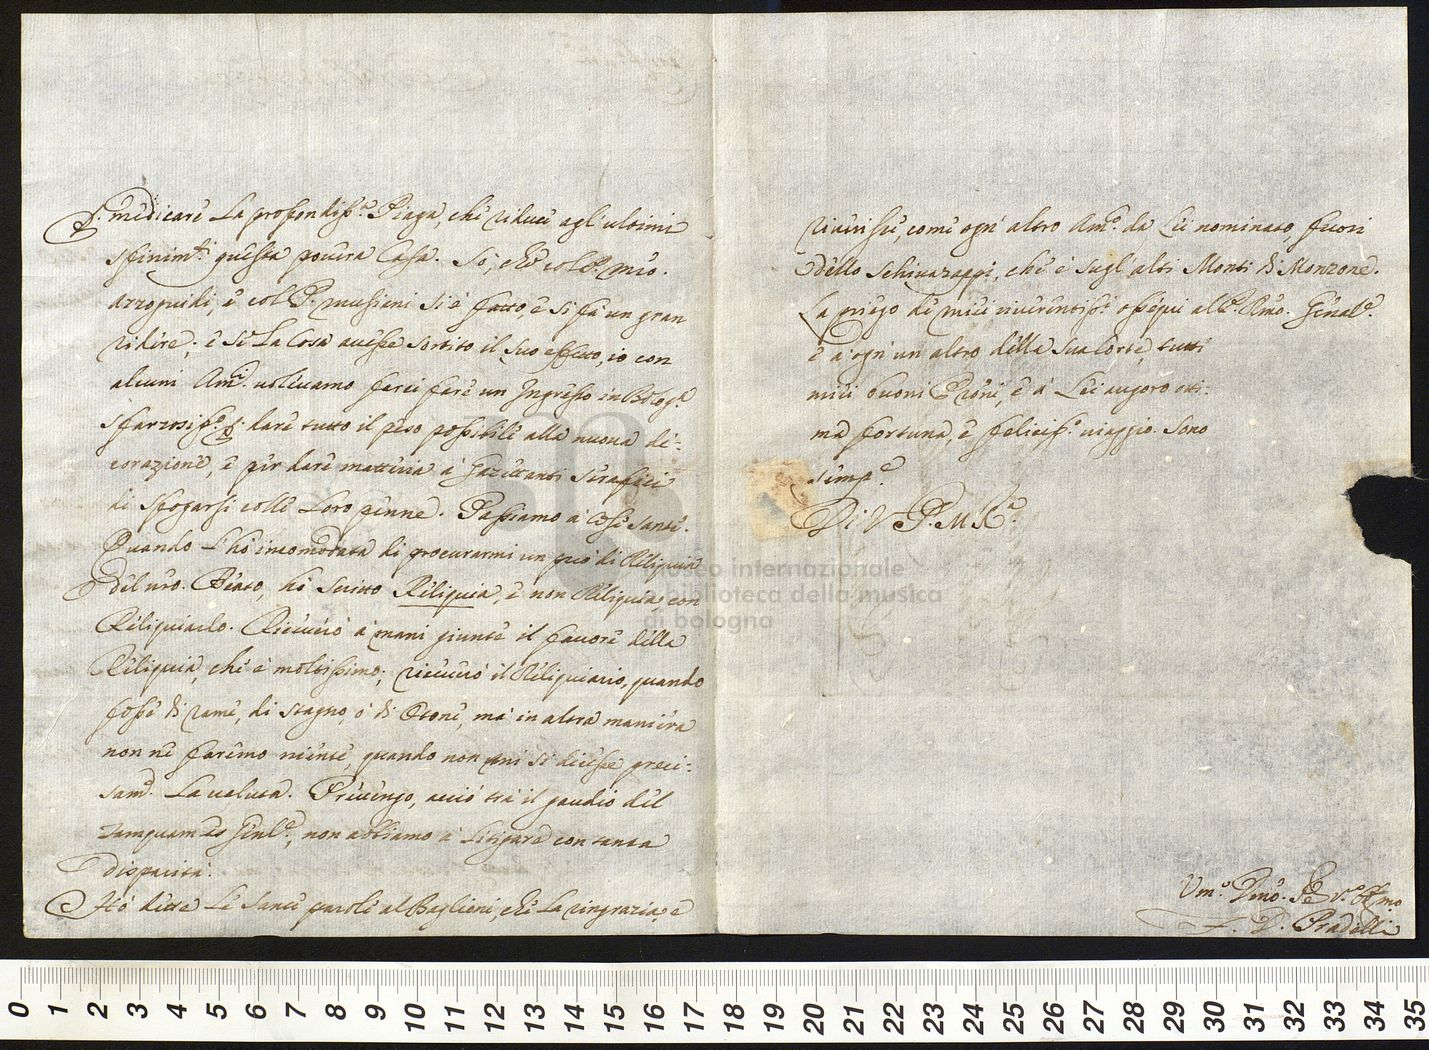 P. medicare La profondiss.ᵃ Piaga, che riduce agl'ultimi
sfinim.ᵗⁱ questa povera Casa. Sò, che col P. mro.
Arzoguidi, e col P. mussini si è fatto, e si fà un gran
ridere; e se La cosa avesse sortito il suo effetto, io con
alcuni Am.ⁱ volevamo farci fare un Ingresso in Bolog.ᵃ
sfarzosiss.ᵒ p. dare tutto il peso possibile alla nuova de:
corazione, e per dare matteria a' Gazettanti Serafici
di sfogarsi colle Loro penne. Passiamo a cose sante.
Quando L'hò incomodata di procurarmi un pcò di Reliquia
del nro. Beato, hò scritto Reliquia, e non Reliquia, con
Reliquiario. Riceverò a mani giunte il favore della
Reliquia, che è moltissimo; riceverò il Reliquiario, quando
fosse di rame, di stagno, ò di Otone, mà in altra maniera
non ne faremo niente, quando non mi si dicesse preci:
sam.ᵉ La valuta. Prevengo, acciò trà il gaudio del
tamquam es Genl.ᵉ, non abbiamo a Litigare con tanta
disparità.
Hò dette Le sante parole al Baglioni, che La ringrazia, e
riverisce, come ogn'altro Am.ᵒ da Lei nominato, fuori
dello Schivazappi, che è sugl'alti Monti di Monzone.
La priego de' miei riverentiss.ⁱ ossequi al P. Rmo. Genale.
e a ogn'un altro della sua Corte, tutti
miei buoni Pròni, e a Lei auguro otti:
ma fortuna, e feliciss.ᵒ viaggio. Sono
semp.ᵉ
Di V P. M R.ᵃ
museo internazionale
e biblioteca della musica
di bologna
Um.ᵒ Dmo. Se r.ᵉ Obmo
F. D. Pradelli
0 1 2 3 4 5 6 7 8 9 10 11 12 13 14 15 16 17 18 19 20 21 22 23 24 25 26 27 28 29 30 31 32 33 34 35